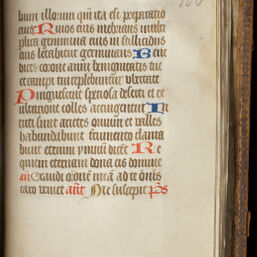 bum illorum qm̄ ita est preparatio
eius Riuos eius inebrians multi
plica genimina eius in stillicidiis
eius letabitur germinans Bene
dices corone anni benignitatis tue
et campi tui replebuntur vbertate
Pinguescent speciosa deserti et ex
ultatione colles accingentur In
duti sunt arietes ouium et valles
habundabunt frumento clama
bunt etenim ymnum dicēt Re
quiem eternam dona eis domine
añ Exaudi orōnem meā ad te om̄is
caro veniet añt Me suscepit p̄s